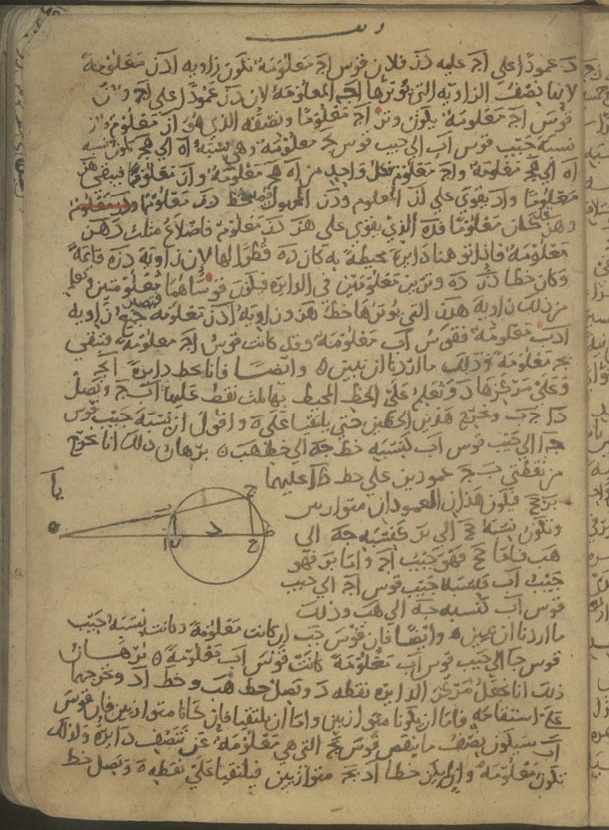 د عمودا على اج عليه دز فلان قوس اج معلومة تكون زاوية ادز معلومة
لانها نصف الزاوية التي يوترها اج المعلومة لان دز عمودا على اج ولان
قوس اج معلومة يكون وتر اج معلوما ونصفه الذي هو از معلوم
نسبة جيب قوس اب الى جيب قوس بج معلومة وهي نسبة اه الى هج تكون نسبة
اه الى هج معلومة واج معلوم فكل واحد من اه هج معلومة و از معلوم فيبقى هز
معلوما و اد يقوى على از المعلوم ودز المجهول فخط دز معلوم
وهز كان معلوما فده الذي يقوى على هز دز معلوم فاضلاع مثلث دهز
معلومة فاذا توهمنا دايرة محيطة به كان ده قطرا لها لان زاوية دزه قايمة
وكان خطا دز زه وترين معلومين في الدايرة فيكون قوساهما معلومتين فتعلم
من ذلك زاوية هدز التي يوترها خط هز وزاوية ادز معلومة فتصير جميع زاوية
ادب معلومة فقوس اب معلومة وقد كانت قوس اج معلومة فتبقى
بج معلومة وذلك ما اردنا ان نبين ه وايضا فانا نخط دايرة ابج
وعلى مركزها د ونعلم على الخط المحيط بها ثلث نقط عليها اب ج ونصل
دا جب ونخرج هذين الخطين حتى يلتقيا على ه واقول ان نسبة جيب قوس
جا الى جيب قوس اب كنسبة خط جه الى خط هب ه برهان ذلك انا نخرج
من نقطتي ب ج عمودين على خط دا عليهما
بز جح فيكون هذان العمودان متوازيين
وتكون نسبة جح الى بز كنسبة جه الى
هب فاما جح فهو جيب اج واما بز فهو
جيب اب فنسبة جيب قوس اج الى جيب
قوس اب كنسبة جه الى هب وذلك
ما اردنا ان نبين ه وايضا فان قوس جب ان كانت معلومة وكانت نسبة جيب
قوس جا الى جيب قوس اب معلومة كانت قوس اب معلومة ه برهان
ذلك انا نجعل مركز الدايرة نقطة د ونصل خط جب وخط اد ونخرجهما
على استقامة فاما ان يكونا متوازيين واما ان يلتقيا فان كانا متوازيين فان قوس
اب سيكون نصف ما ينقص قوس بج التي هي معلومة عن نصف دايرة ولذلك
تكون معلومة وان لم يكن خطا اد بج متوازيين فيلتقيا على نقطة ه ونصل خط
يا
ج
ا
ب
د
ز
ح
ه